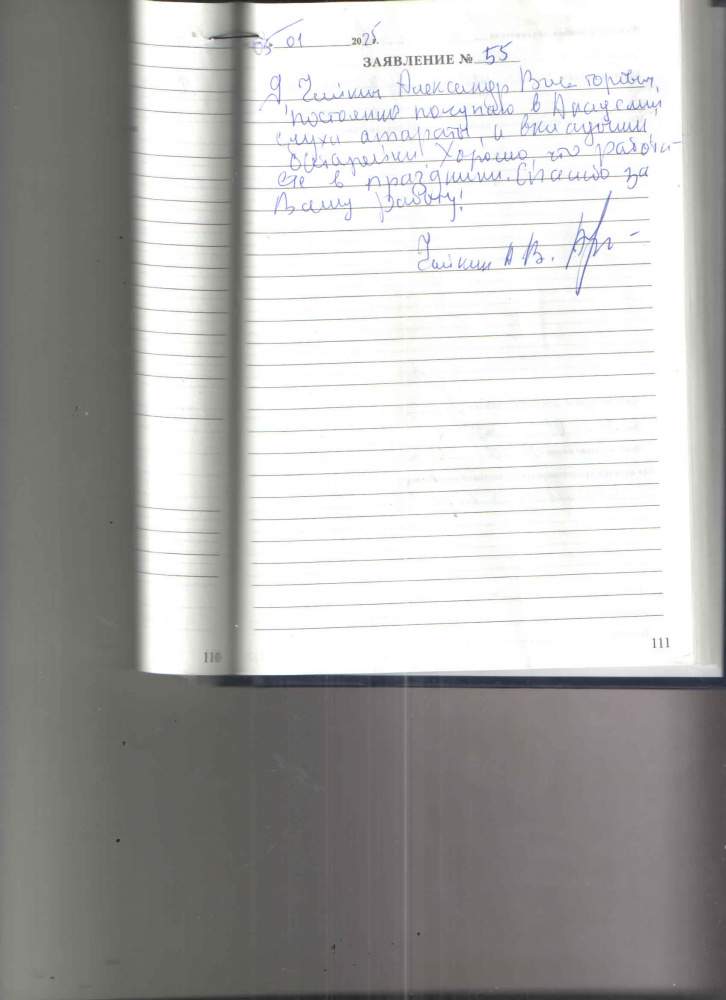 05 01 2025г.
ЗАЯВЛЕНИЕ № 55
Я Чайкин Александр Викторович,
постоянно покупаю в Академии
слуха апараты и
батарейки. Хорошо, что работа-
ете в праздники. Спасибо за
Вашу работу!
Чайкин А В.
110
111